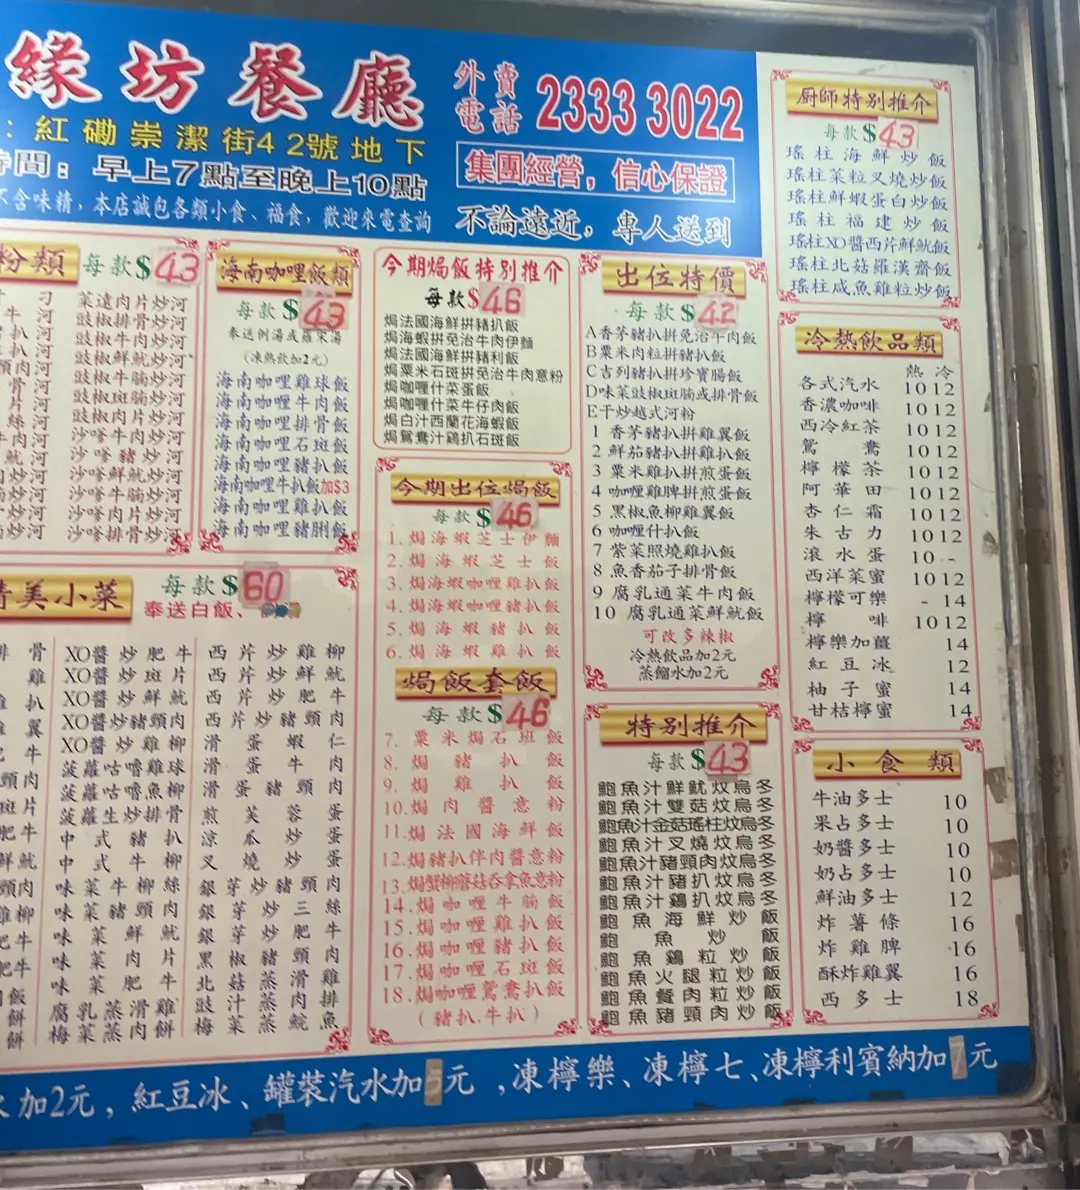 緣坊餐廳
外賣電話 2333 3022
：紅磡崇潔街42號地下
時間：早上7點至晚上10點
集團經營，信心保證
不含味精，本店誠包各類小食、福食，歡迎來電查詢
不論遠近，專人送到
粉類 每款$43
菜遠肉片炒河
豉椒排骨炒河
豉椒牛肉炒河
豉椒鮮魷炒河
豉椒牛腩炒河
豉椒斑腩炒河
豉椒肉片炒河
沙嗲牛肉炒河
沙嗲豬炒河
沙嗲鮮魷炒河
沙嗲牛腩炒河
沙嗲肉片炒河
沙嗲排骨炒河
海南咖哩飯類
每款$43
奉送例湯或羅宋湯
(凍熱飲加2元)
海南咖哩雞球飯
海南咖哩牛肉飯
海南咖哩排骨飯
海南咖哩石斑飯
海南咖哩豬扒飯
海南咖哩牛扒飯加$3
海南咖哩雞扒飯
海南咖哩豬脷飯
今期焗飯特別推介
每款$46
焗法國海鮮拼豬扒飯
焗海蝦拼免治牛肉伊麵
焗法國海鮮拼豬利飯
焗粟米石斑拼免治牛肉意粉
焗咖喱什菜蛋飯
焗咖喱什菜牛仔肉飯
焗白汁西蘭花海蝦飯
焗鴛鴦汁鷄扒石斑飯
今期出位焗飯
每款$46
1.焗海蝦芝士伊麵
2.焗海蝦芝士飯
3.焗海蝦咖哩雞扒飯
4.焗海蝦咖哩豬扒飯
5.焗海蝦豬扒飯
6.焗海蝦雞扒飯
焗飯套飯
每款$46
7.粟米焗石斑飯
8.焗豬扒飯
9.焗雞扒飯
10.焗肉醬意粉
11.焗法國海鮮飯
12.焗豬扒伴肉醬意粉
13.焗蟹柳蘑菇吞拿魚意粉
14.焗咖哩牛腩飯
15.焗咖哩雞扒飯
16.焗咖哩豬扒飯
17.焗咖哩石斑飯
18.焗咖哩鴛鴦扒飯
(豬扒.牛扒)
出位特價
每款$42
A香茅豬扒拼免治牛肉飯
B粟米肉粒拼豬扒飯
C吉列豬扒拼珍寶腸飯
D味菜豉椒斑腩或排骨飯
E干炒越式河粉
1 香茅豬扒拼雞翼飯
2 鮮茄豬扒拼雞扒飯
3 粟米雞扒拼煎蛋飯
4 咖喱雞脾拼煎蛋飯
5 黑椒魚柳雞翼飯
6 咖喱什扒飯
7 紫菜照燒雞扒飯
8 魚香茄子排骨飯
9 腐乳通菜牛肉飯
10 腐乳通菜鮮魷飯
可改多辣椒
冷熱飲品加2元
蒸餾水加2元
特別推介
每款$43
鮑魚汁鮮魷炆烏冬
鮑魚汁雙菇炆烏冬
鮑魚汁金菇瑤柱炆烏冬
鮑魚汁叉燒炆烏冬
鮑魚汁豬頸肉炆烏冬
鮑魚汁豬扒炆烏冬
鮑魚汁鷄扒炆烏冬
鮑魚海鮮炒飯
鮑魚炒飯
鮑魚鷄粒炒飯
鮑魚火腿粒炒飯
鮑魚餐肉粒炒飯
鮑魚豬頸肉炒飯
厨師特別推介
每款$43
瑤柱海鮮炒飯
瑤柱菜粒叉燒炒飯
瑤柱鮮蝦蛋白炒飯
瑤柱福建炒飯
瑤柱XO醬西芹鮮魷飯
瑤柱北菇羅漢齋飯
瑤柱咸魚雞粒炒飯
冷熱飲品類
熱 冷
各式汽水 10 12
香濃咖啡 10 12
西冷紅茶 10 12
鴛鴦 10 12
檸檬茶 10 12
阿華田 10 12
杏仁霜 10 12
朱古力 10 12
滾水蛋 10 -
西洋菜蜜 10 12
檸檬可樂 - 14
檸啡 10 12
檸樂加薑 14
紅豆冰 12
柚子蜜 14
甘桔檸蜜 14
小食類
牛油多士 10
果占多士 10
奶醬多士 10
奶占多士 10
鮮油多士 12
炸薯條 16
炸雞脾 16
酥炸雞翼 16
西多士 18
美小菜 每款$60
奉送白飯、
XO醬炒肥牛 西芹炒雞柳
XO醬炒斑片 西芹炒鮮魷
XO醬炒鮮魷 西芹炒肥牛
XO醬炒豬頸肉 西芹炒豬頸肉
XO醬炒雞柳 滑蛋蝦仁
菠蘿咕嚕雞球 滑蛋牛肉
菠蘿咕嚕魚柳 滑蛋豬頸肉
菠蘿生炒排骨 煎芙蓉蛋
中式豬扒 涼瓜炒蛋
中式牛柳 叉燒炒蛋
味菜牛柳絲 銀芽炒豬頸肉
味菜豬頸肉 銀芽炒三絲
味菜鮮魷 銀芽炒肥牛
味菜肉片 黑椒豬頸肉
味菜肥牛 北菇蒸滑雞
腐乳蒸滑雞 豉汁蒸肉排
梅菜蒸肉餅 梅菜蒸鯇魚
加2元，紅豆冰、罐裝汽水加5元，凍檸樂、凍檸七、凍檸利賓納加7元